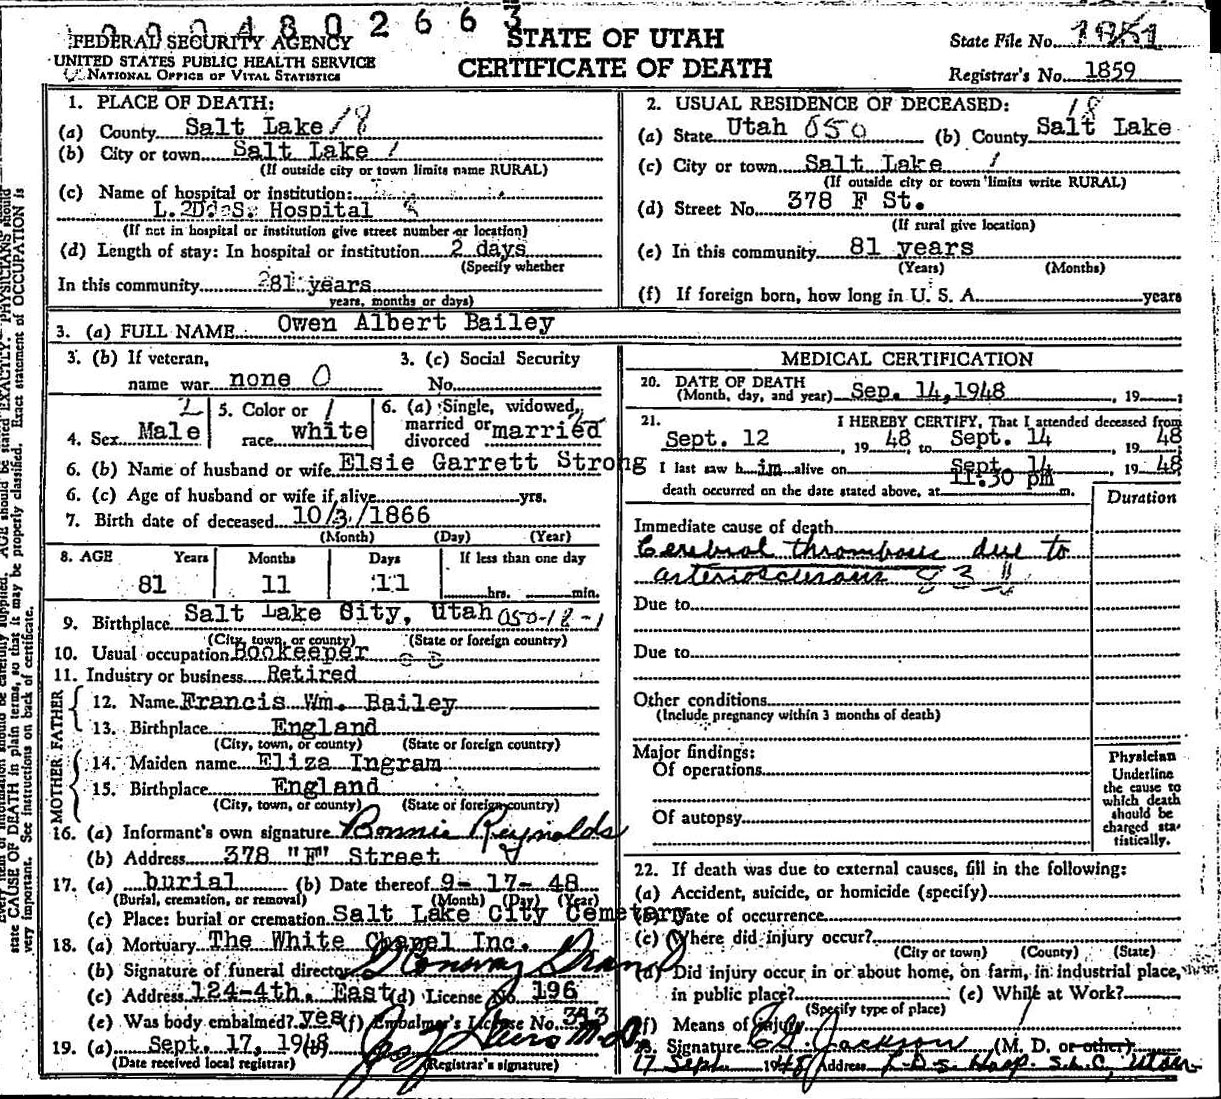 0004802663
FEDERAL SECURITY AGENCY
UNITED STATES PUBLIC HEALTH SERVICE
NATIONAL OFFICE OF VITAL STATISTICS
STATE OF UTAH
CERTIFICATE OF DEATH
State File No. 1851
Registrar's No. 1859
1. PLACE OF DEATH:
(a) County Salt Lake 18
(b) City or town Salt Lake 1
(If outside city or town limits name RURAL)
(c) Name of hospital or institution:
L. D. S. Hospital
(If not in hospital or institution give street number or location)
(d) Length of stay: In hospital or institution 2 days
(Specify whether
In this community 81 years
years, months or days)
2. USUAL RESIDENCE OF DECEASED:
18
(a) State Utah 050 (b) County Salt Lake
(c) City or town Salt Lake 1
(If outside city or town limits write RURAL)
(d) Street No. 378 F St.
(If rural give location)
(e) In this community 81 years
(Years) (Months)
(f) If foreign born, how long in U. S. A. years
3. (a) FULL NAME Owen Albert Bailey
3. (b) If veteran, name war none 0
3. (c) Social Security No.
4. Sex Male 2
5. Color or race white 1
6. (a) Single, widowed, married or divorced married
6. (b) Name of husband or wife Elsie Garrett Strong
6. (c) Age of husband or wife if alive yrs.
7. Birth date of deceased 10/3/1866
(Month) (Day) (Year)
8. AGE Years Months Days If less than one day
81 11 11 hrs. min.
9. Birthplace Salt Lake City, Utah 050-18-1
(City, town, or county) (State or foreign country)
10. Usual occupation Bookeeper
11. Industry or business Retired
FATHER
12. Name Francis Wm. Bailey
13. Birthplace England
(City, town, or county) (State or foreign country)
MOTHER
14. Maiden name Eliza Ingram
15. Birthplace England
(City, town, or county) (State or foreign country)
16. (a) Informant's own signature Bonnie Reynolds
(b) Address 378 "F" Street
17. (a) burial (b) Date thereof 9- 17- 48
(Burial, cremation, or removal) (Month) (Day) (Year)
(c) Place: burial or cremation Salt Lake City Cemetery
18. (a) Mortuary The White Chapel Inc.
(b) Signature of funeral director
(c) Address 124-4th. East (d) License No. 196
(e) Was body embalmed? yes (f) Embalmer's License No. 343
19. (a) Sept. 17, 1948 (b)
(Date received local registrar) (Registrar's signature)
MEDICAL CERTIFICATION
20. DATE OF DEATH
(Month, day, and year) Sep. 14,1948, 19
21. I HEREBY CERTIFY, That I attended deceased from
Sept. 12, 19 48 to Sept. 14, 19 48
I last saw h im alive on Sept 14, 19 48
death occurred on the date stated above, at 11:30 pm m.
Duration
Immediate cause of death
Cerebral thrombosis due to
arteriosclerosis 83
Due to
Due to
Other conditions
(Include pregnancy within 3 months of death)
Major findings:
Of operations
Of autopsy
Physician
Underline
the cause to
which death
should be
charged sta-
tistically.
22. If death was due to external causes, fill in the following:
(a) Accident, suicide, or homicide (specify)
(b) Date of occurrence
(c) Where did injury occur?
(City or town) (County) (State)
(d) Did injury occur in or about home, on farm, in industrial place,
in public place? (e) While at Work?
(Specify type of place)
(f) Means of injury
23. Signature Jackson (M. D. or other)
17 Sept 1948 Address L.D.S. Hosp. S.L.C, Utah
AGE should be stated EXACTLY. PHYSICIANS should
state CAUSE OF DEATH in plain terms, so that it may be properly classified. Exact statement of OCCUPATION is
very important. See instructions on back of certificate.